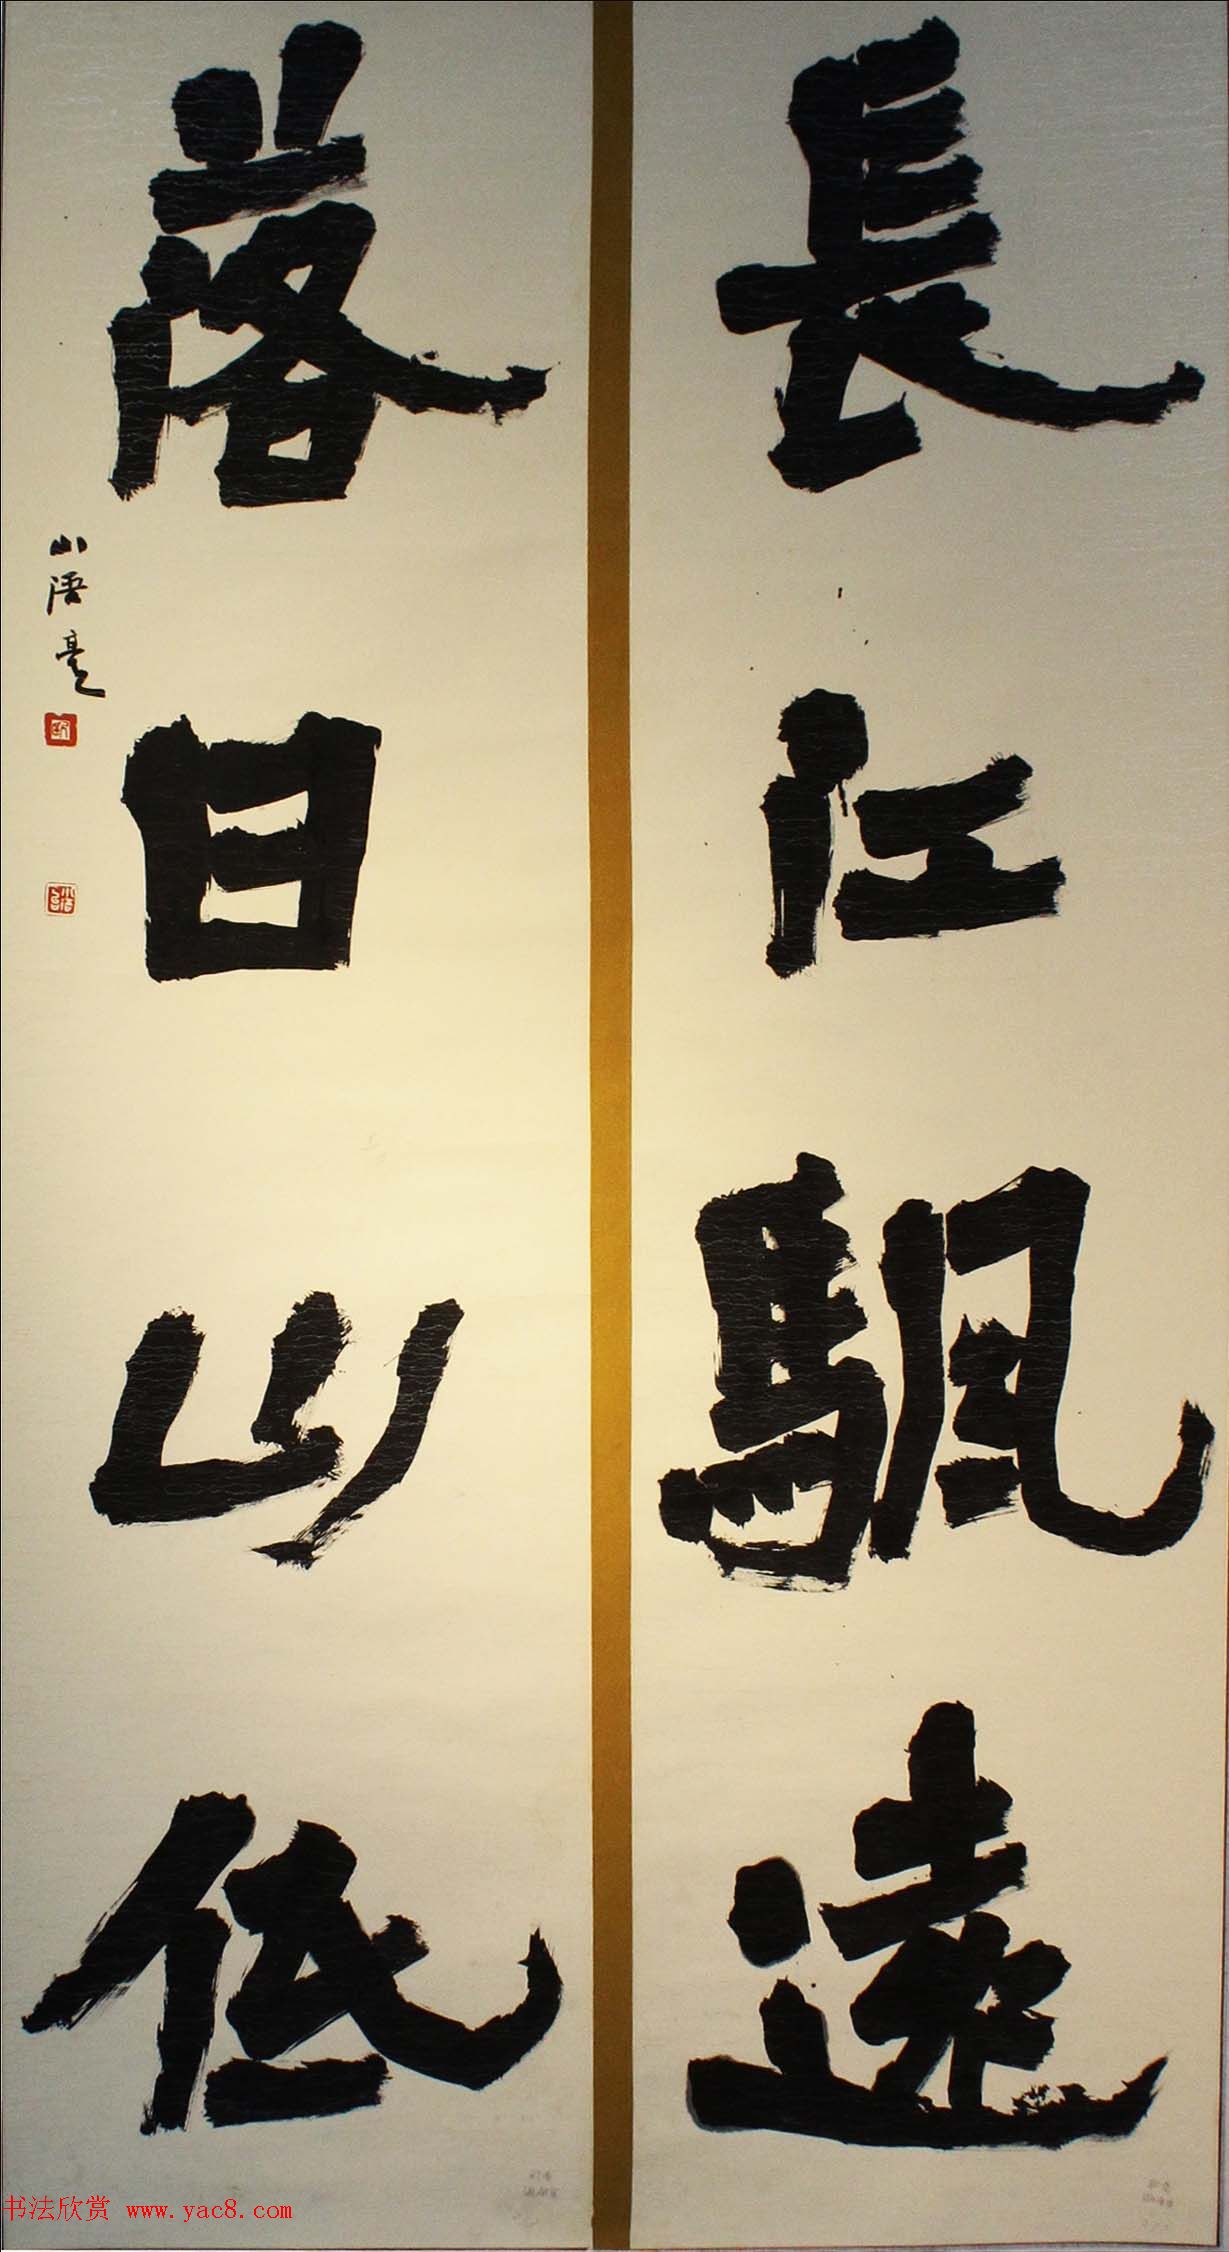 長江颿遠
落日山低
书法欣赏 www.yac8.com